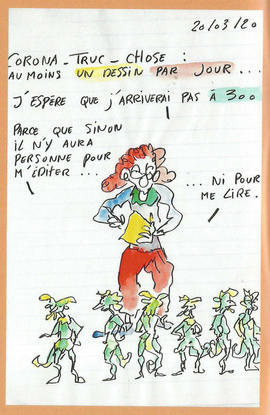 20/03/20
CORONA_TRUC_CHOSE :
AU MOINS UN DESSIN PAR JOUR ...
J'ESPÈRE QUE J'ARRIVERAI PAS À 300
PARCE QUE SINON
IL N'Y AURA
PERSONNE POUR
M'ÉDITER ...
... NI POUR
ME LIRE.